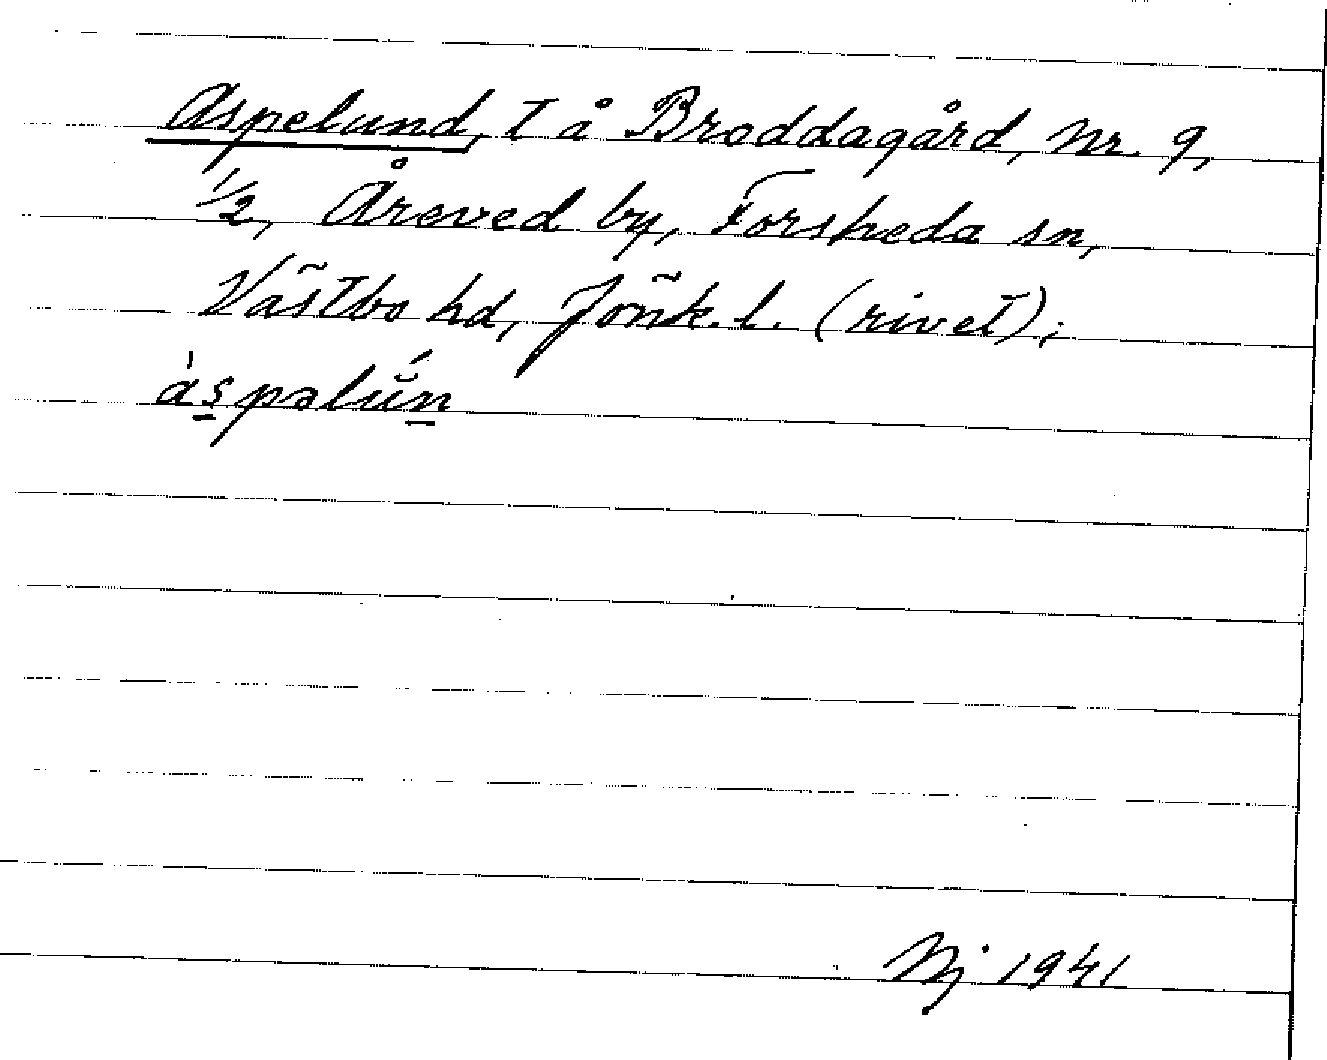 Aspelund, t å Broddagård, Nr. 9,
1/2, Åreved by, Forsheda sn,
Västbo hd, Jönk. l. (rivet);
àspəlùn
Nj 1941